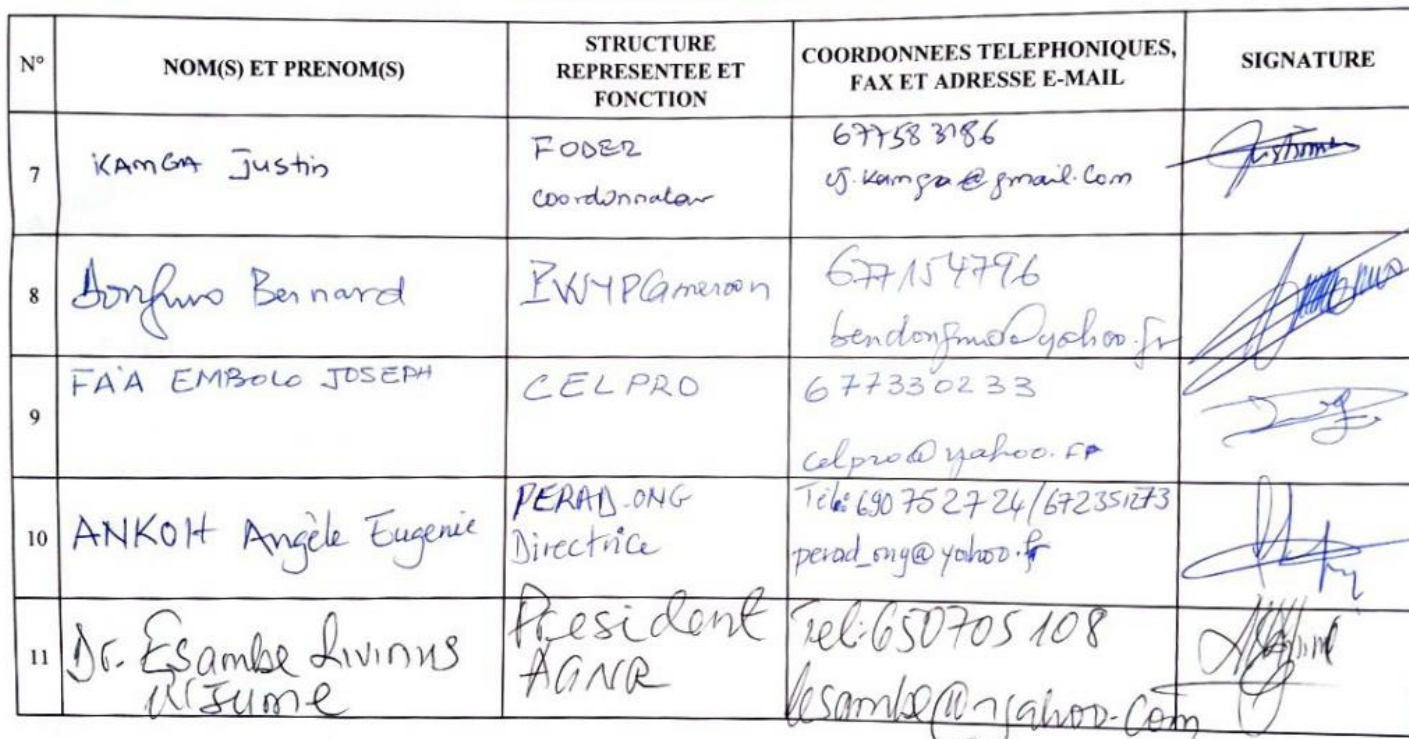 N°
NOM(S) ET PRENOM(S)
STRUCTURE
REPRESENTEE ET
FONCTION
COORDONNEES TELEPHONIQUES,
FAX ET ADRESSE E-MAIL
SIGNATURE
7
KAMGA Justin
FODER
Coordonnateur
677583186
cj.kamga@gmail.com
8
Dongmo Bernard
PWYPCameroon
677154796
bendongmo@yahoo.fr
9
FA'A EMBOLO JOSEPH
CELPRO
677330233
celpro@yahoo.fr
10
ANKOH Angèle Eugenie
PERAD-ONG
Directrice
Tél: 690752724/672351273
perad_ong@yahoo.fr
11
Dr. Esambe Livinus
Njume
President
AGNR
Tel: 650705108
lesambe@yahoo.com